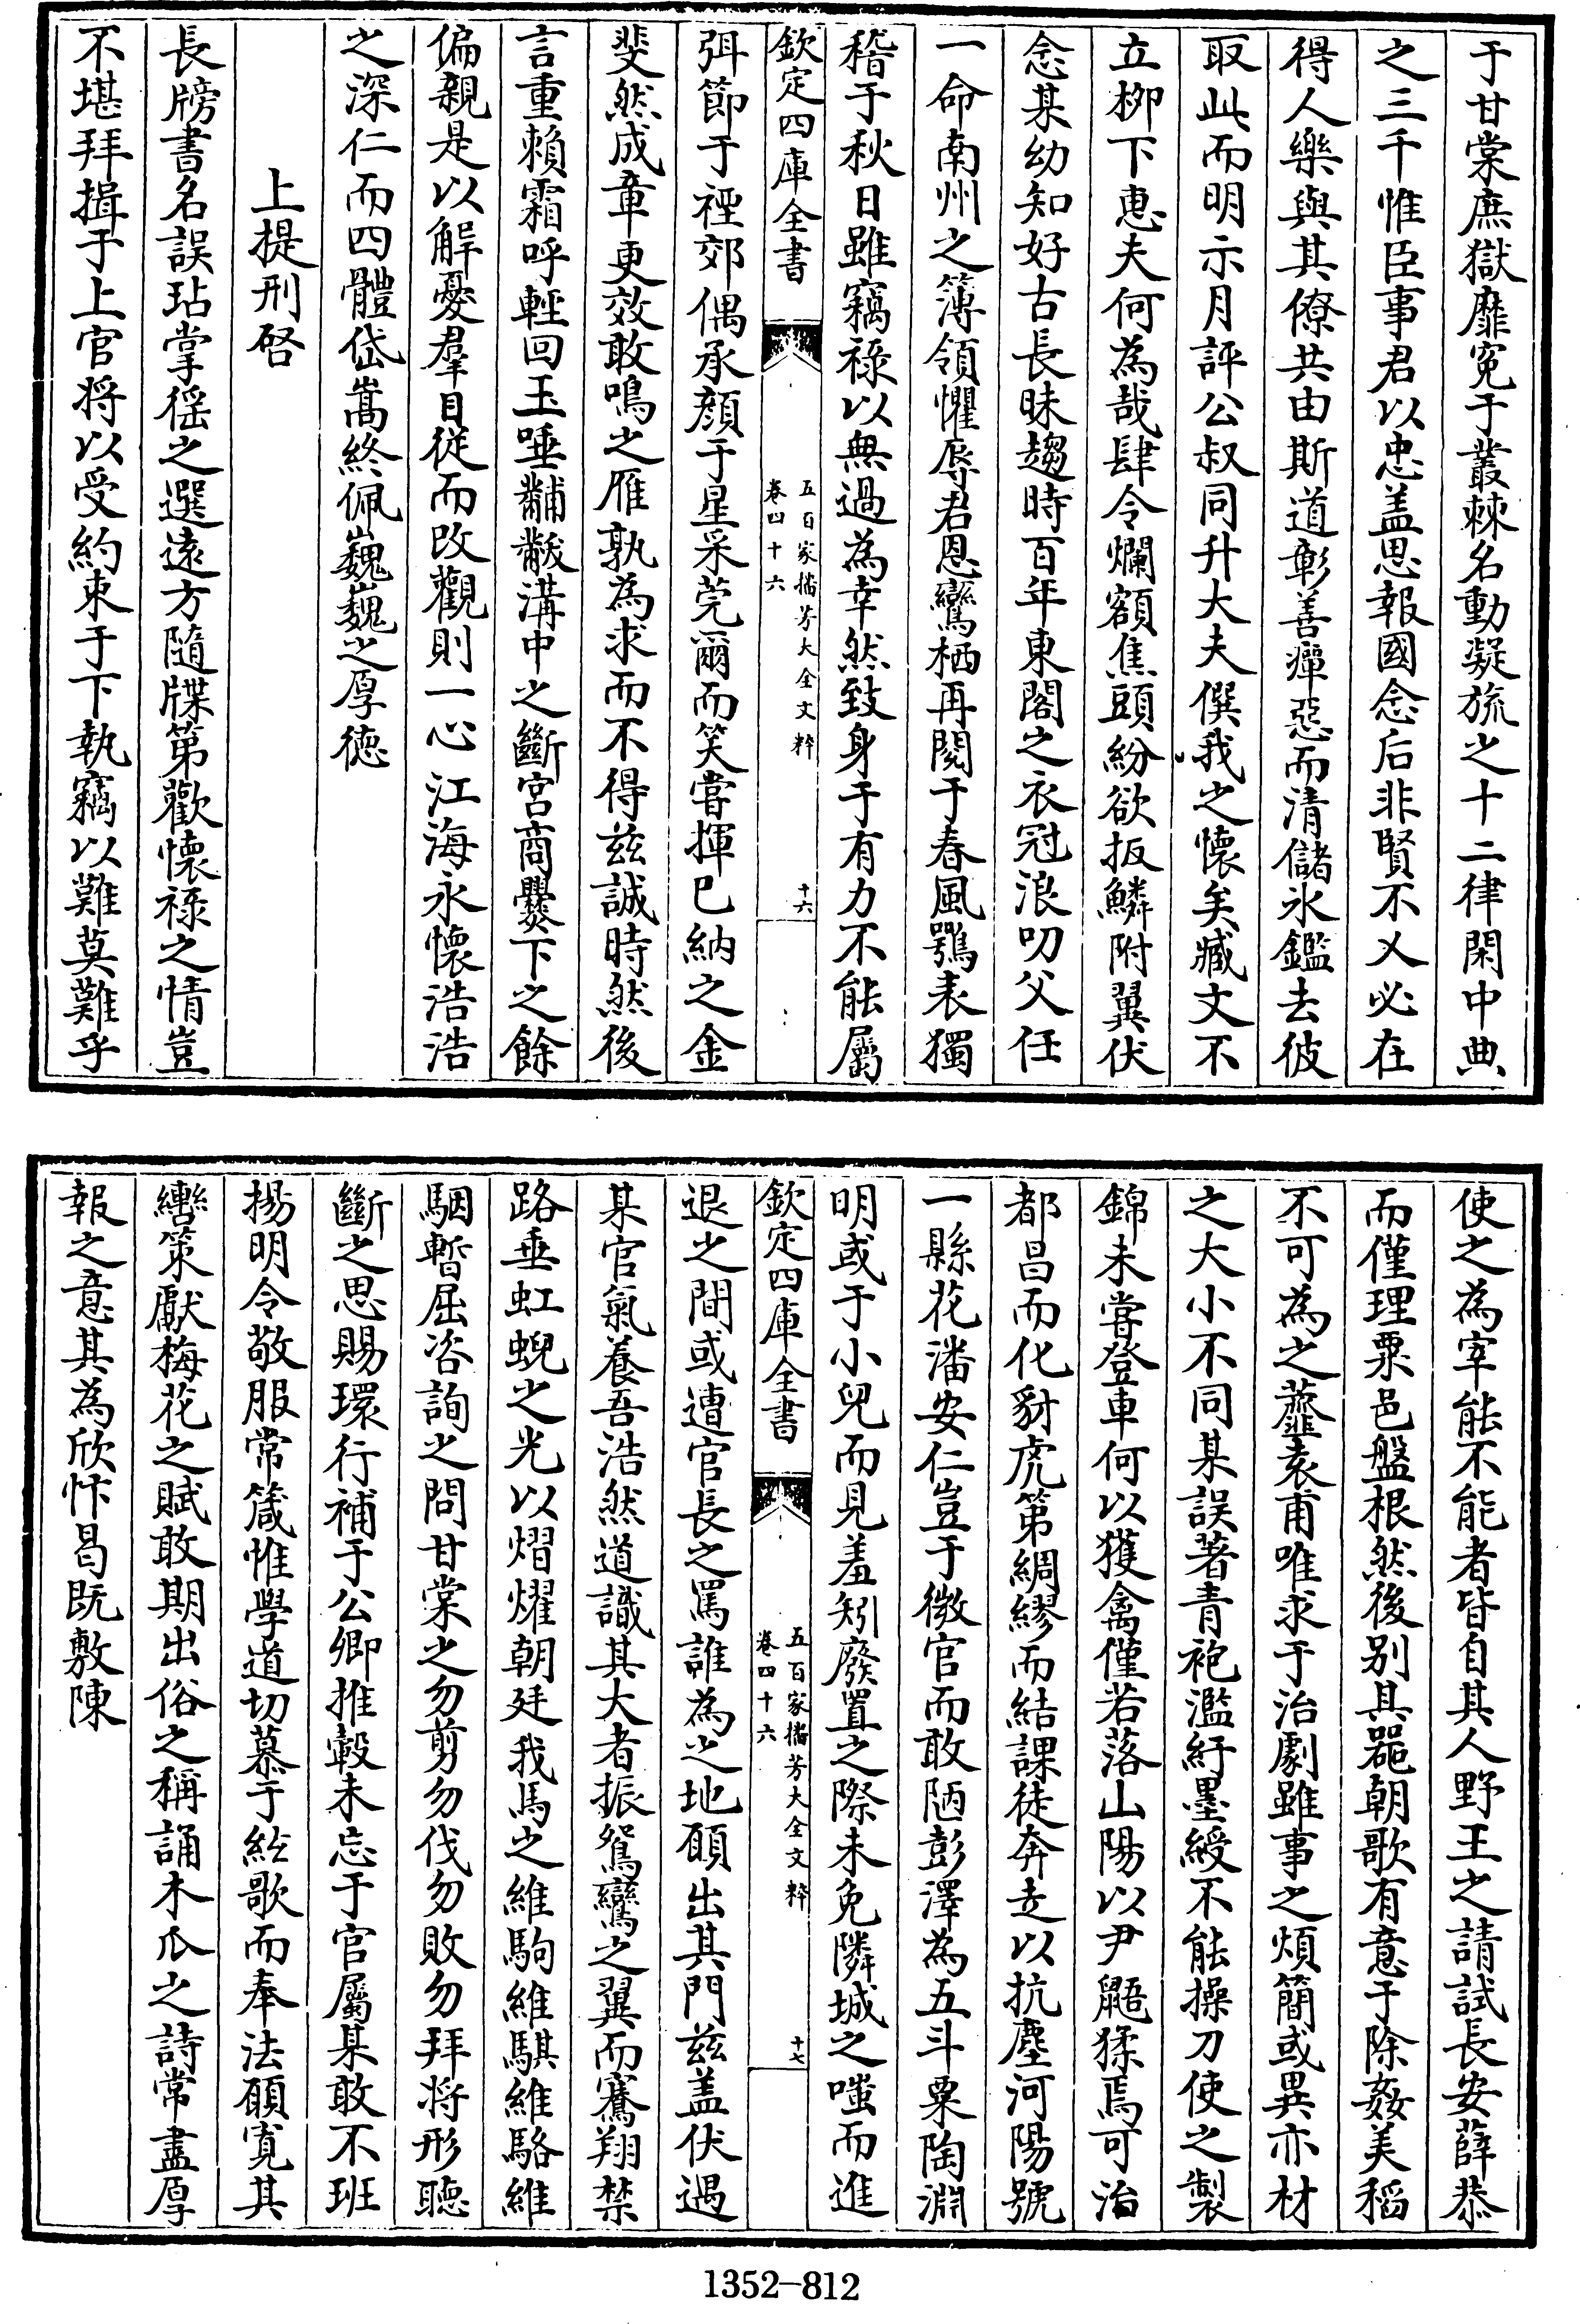 于甘棠庶獄靡寃于叢棘名動凝旒之十二律閑中典
之三千惟臣事君以忠盖思報國念后非賢不乂必在
得人樂與其僚共由斯道彰善癉惡而清儲氷鑑去彼
取此而明示月評公叔同升大夫僎我之懐矣臧文不
立栁下惠夫何為哉肆令爛額焦頭紛欲扳鱗附翼伏
念某幼知好古長昧趨時百年東閣之衣冠浪叨父任
一命南州之簿領懼辱君恩鸞栖再閱于春風鶚表獨
稽于秋日雖竊禄以無過為幸然致身于有力不能屬
欽定四庫全書
五百家播芳大全文粹
卷四十六
十六
弭節于徑郊偶承顔于星采莞爾而笑嘗揮已納之金
斐然成章更效敢鳴之雁孰為求而不得兹誠時然後
言重賴霜呼輕回玉唾黼黻溝中之斷宫商爨下之餘
偏親是以解憂羣目從而改觀則一心江海永懷浩浩
之深仁而四體岱嵩終佩巍巍之厚徳
上提刑啓
長牓書名誤玷掌徭之選逺方隨牒第歡懐禄之情豈
不堪拜揖于上官将以受約束于下執竊以難莫難乎
使之為宰能不能者皆自其人野王之請試長安薛恭
而僅理粟邑盤根然後别其噐朝歌有意于除姦美稻
不可為之虀袁甫唯求于治劇雖事之煩簡或異亦材
之大小不同某誤著青袍濫紆墨綬不能操刀使之製
錦未嘗登車何以獲禽僅若落山陽以尹鼯猱焉可治
都昌而化豺虎第綢繆而結課徒奔走以抗塵河陽號
一縣花潘安仁豈于微官而敢陋彭澤為五斗粟陶淵
明或于小兒而見羞矧廢置之際未免隣城之嗤而進
欽定四庫全書
五百家播芳大全文粹
卷四十六
十七
退之間或遭官長之罵誰為之地願出其門兹盖伏遇
某官氣養吾浩然道識其大者振鴛鸞之翼而騫翔禁
路垂虹蜺之光以熠燿朝廷我馬之維駒維騏維駱維
駰暫屈咨詢之問甘棠之勿剪勿伐勿敗勿拜将形聽
斷之思賜環行補于公卿推轂未忘于官屬某敢不班
揚明令敬服常箴惟學道切慕于絃歌而奉法願寛其
轡策獻梅花之賦敢期出俗之稱誦木瓜之詩常盡厚
報之意其為欣忭曷既敷陳
1352-812